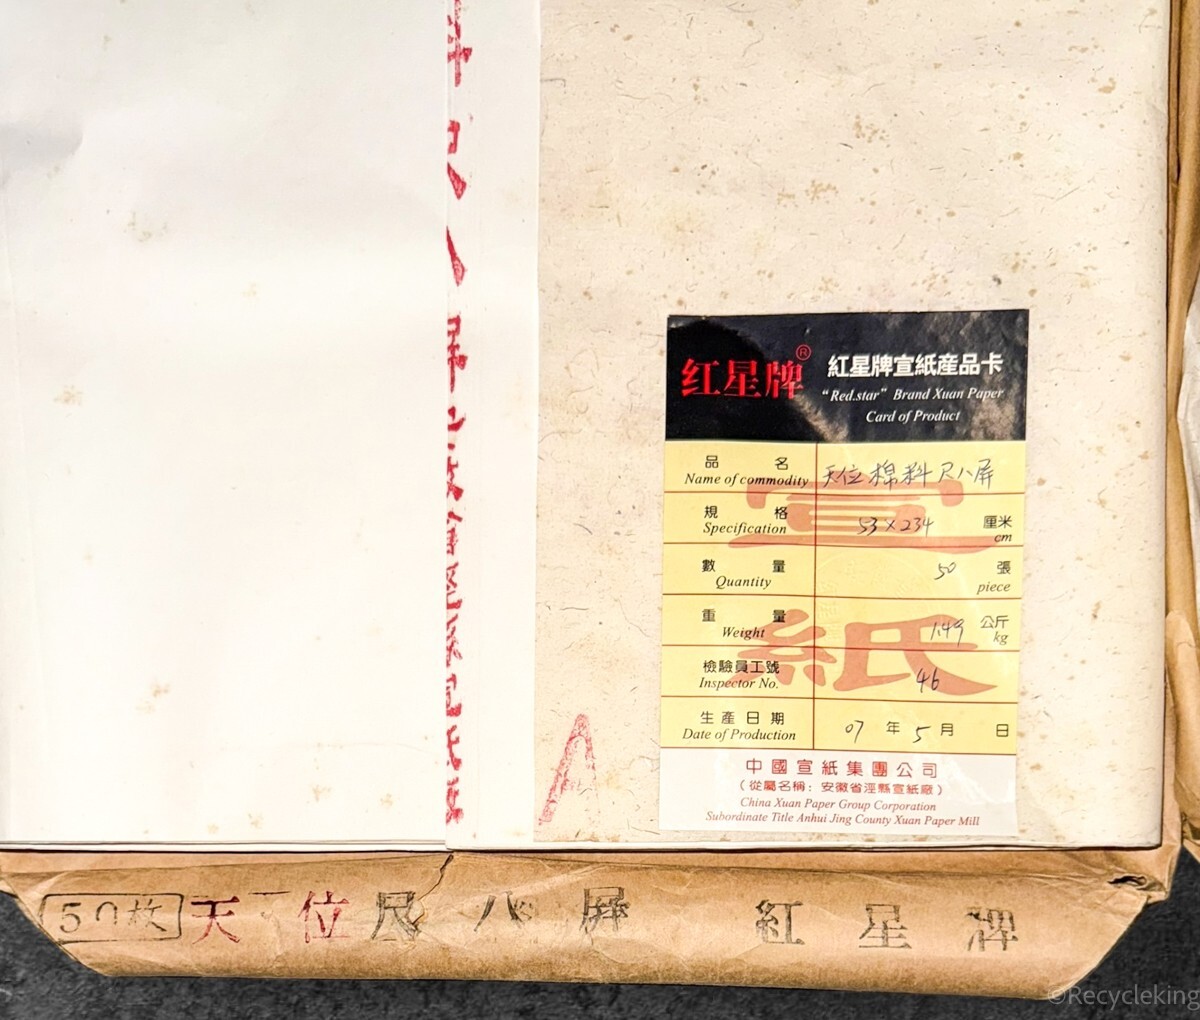 料尺八屏
安徽省涇縣宣紙廠
紅星牌®
紅星牌宣紙產品卡
“Red.star” Brand Xuan Paper
Card of Product
品名 天位棉料尺八屏
Name of commodity
規格 53×234 厘米
Specification cm
數量 50 張
Quantity piece
重量 1.49 公斤
Weight kg
檢驗員工號 46
Inspector No.
生產日期 07年5月 日
Date of Production
宣紙
中國宣紙集團公司
(從屬名稱:安徽省涇縣宣紙廠)
China Xuan Paper Group Corporation
Subordinate Title Anhui Jing County Xuan Paper Mill
50枚 天位尺八屏 紅星牌
©Recycleking